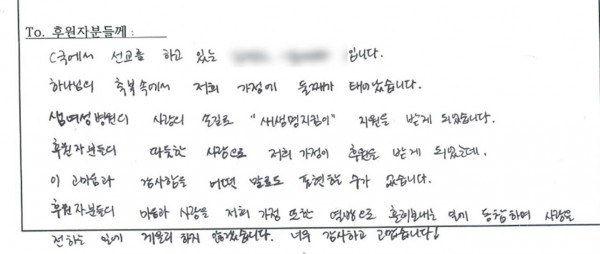 To. 후원자분들께 :
C국에서 선교를 하고 있는 입니다.
하나님의 축복속에서 저희 가정에 둘째가 태어났습니다.
샘여성병원의 사랑의 손길로 "새생명지킴이" 지원을 받게 되었습니다.
후원자분들의 따뜻한 사랑으로 저희 가정이 후원을 받게 되었는데,
이 고마움과 감사함을 어떤 말로도 표현할 수가 없습니다.
후원자분들의 마음과 사랑을 저희 가정 또한 열방으로 흘려보내는 일에 동참하며 사랑을
전하는 일에 게을리 하지 않겠습니다. 너무 감사하고 고맙습니다!